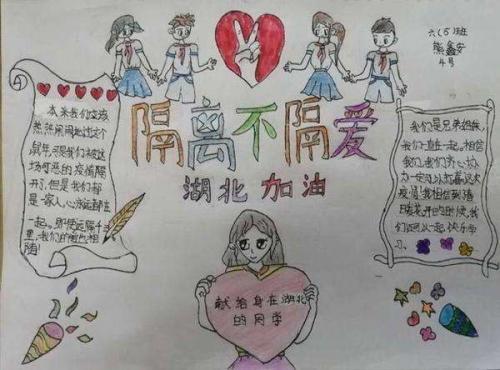 六(5)班
熊鑫安
4号
隔离不隔爱
湖北加油
本来我们应该
热热闹闹地过个
鼠年,可我们被这
场可恶的疫情隔
开了,但是我们都
是一家人,心永远都在
一起。即使远隔千
里,我们的
随!
我们是兄弟姐妹,
我们一直在一起,相信
我们,我们齐心协力
一定可以打赢这次
疫情!我相信到
花开的时候,我
们可以一起,快乐学
习。
献给身在湖北
的同学